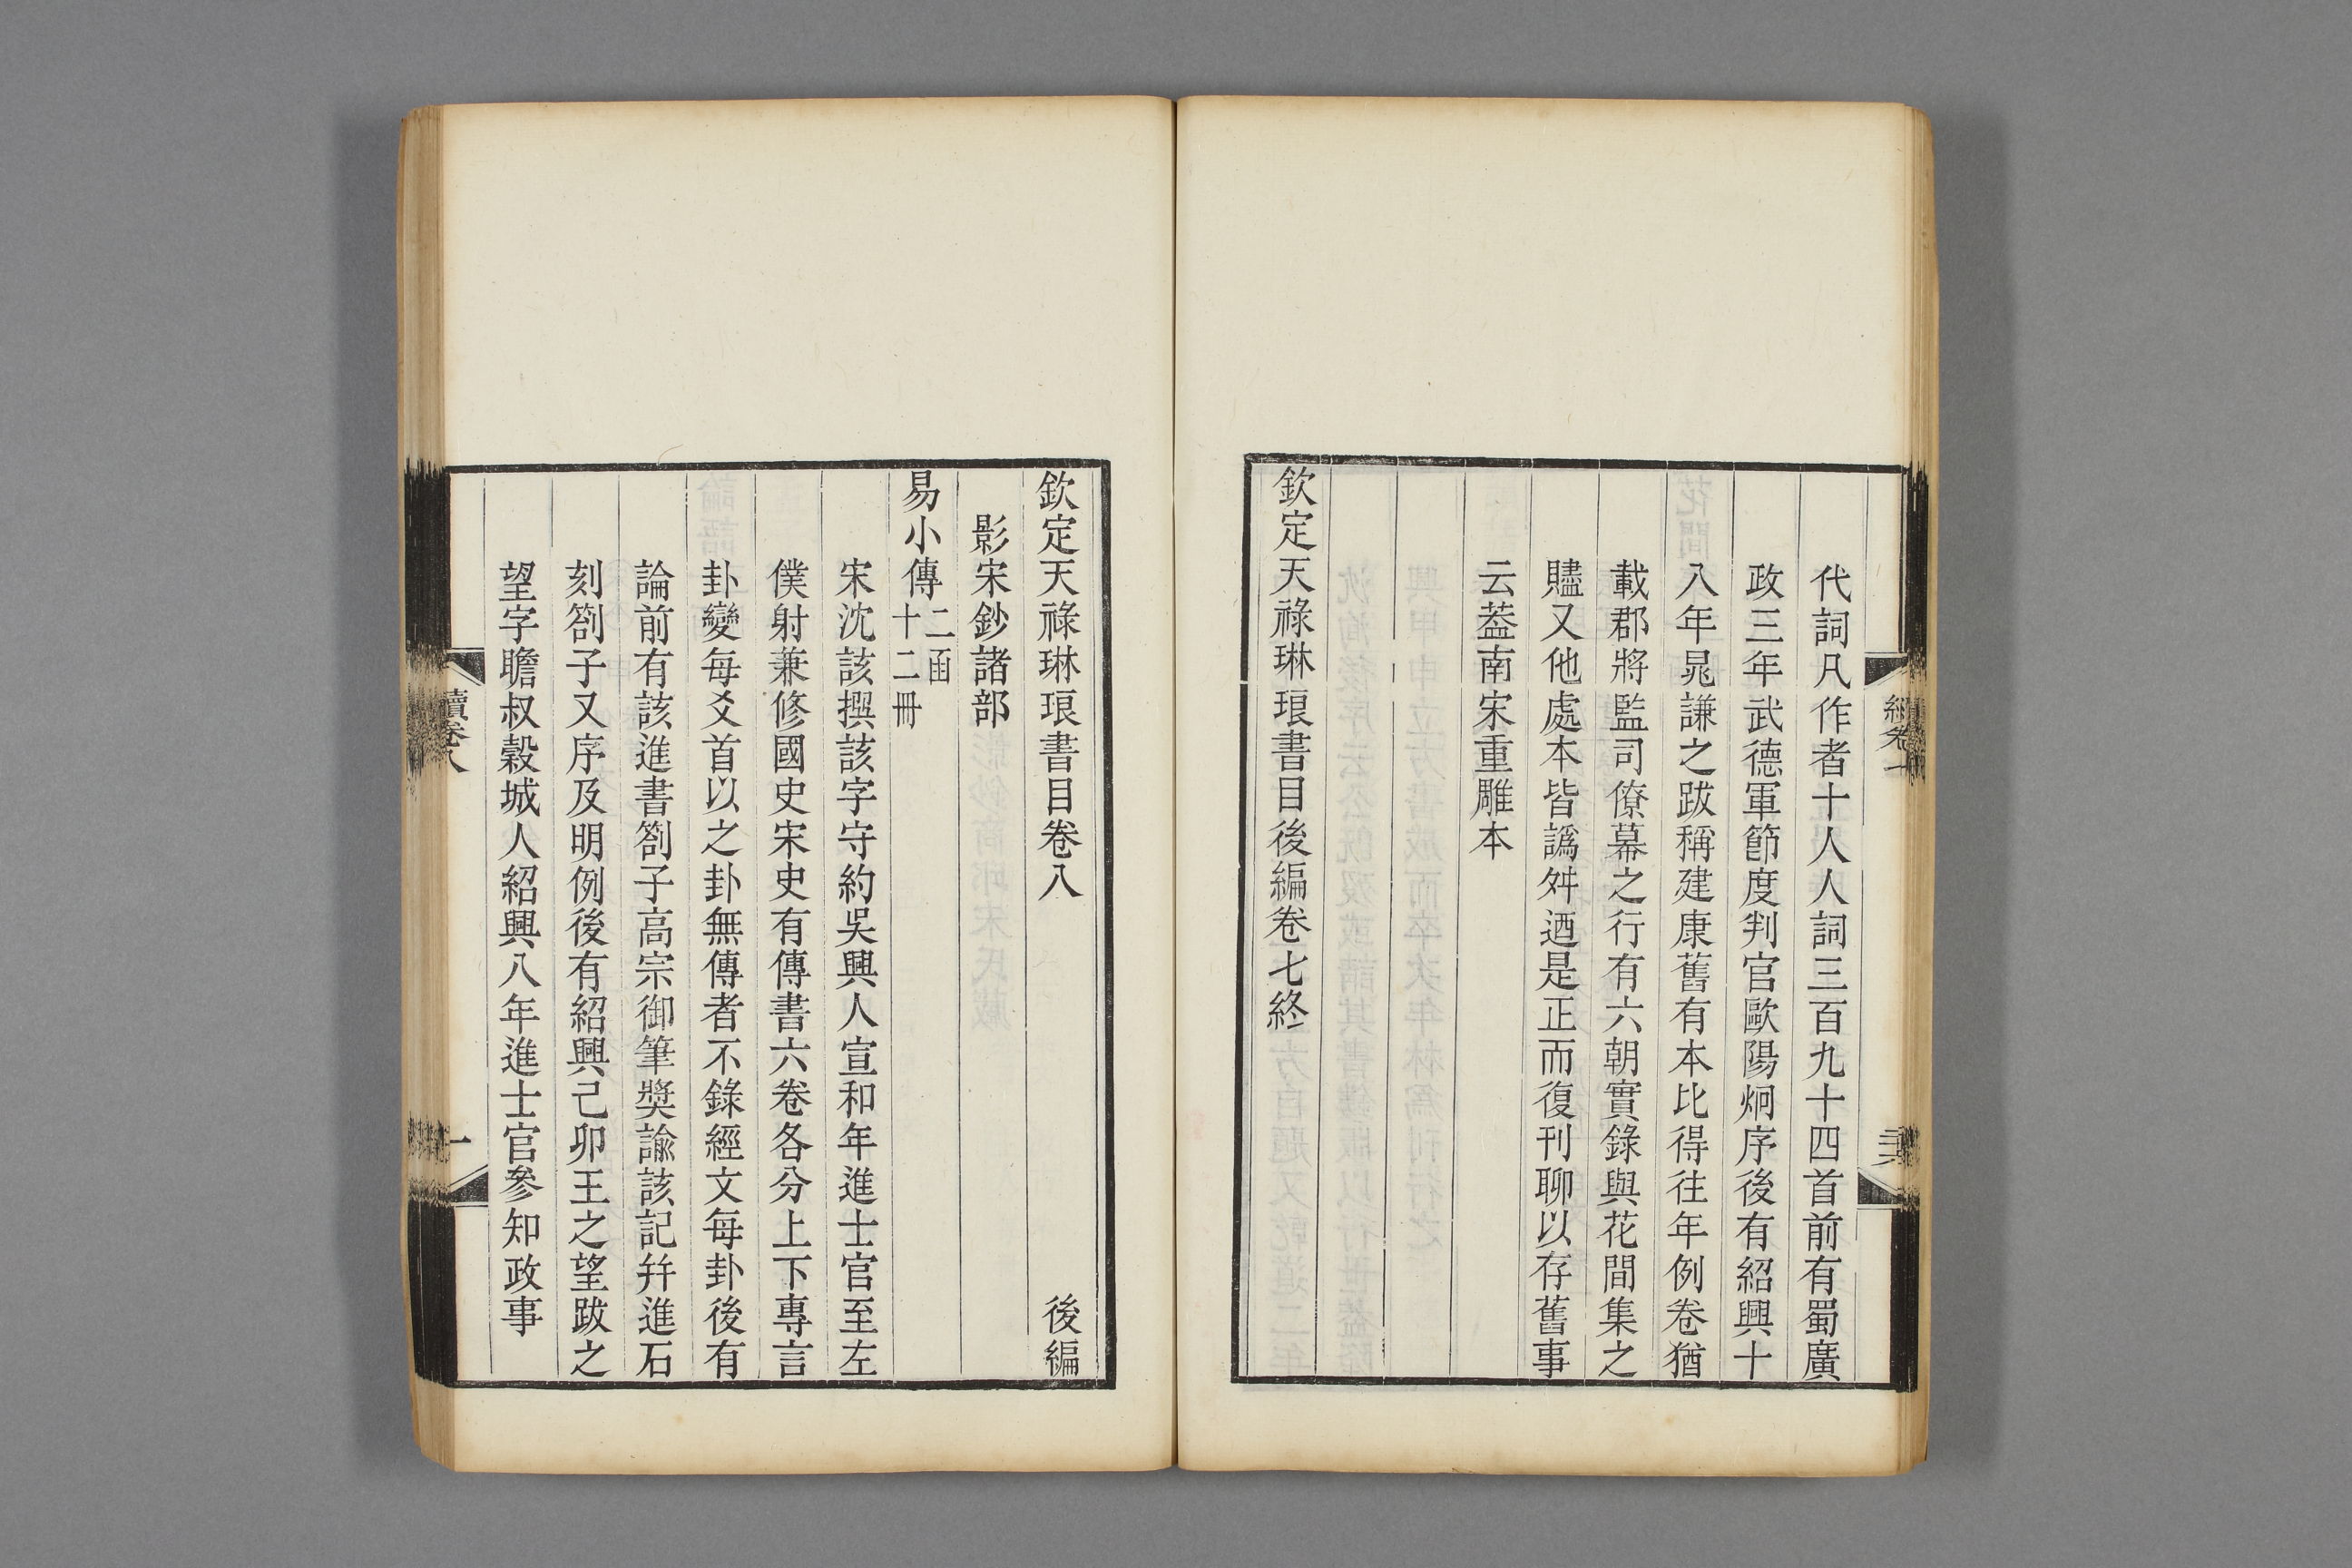 代詞凡作者十人人詞三百九十四首前有蜀廣
政三年武德軍節度判官歐陽炯序後有紹興十
八年晁謙之跋稱建康舊有本比得往年例卷猶
載郡將監司僚幕之行有六朝實錄與花間集之
贐又他處本皆譌舛迺是正而復刊聊以存舊事
云葢南宋重雕本
欽定天祿琳琅書目後編卷七終
欽定天祿琳琅書目卷八 後編
影宋鈔諸部
易小傳 二函十二冊
宋沈該撰該字守約吳興人宣和年進士官至左
僕射兼修國史宋史有傳書六卷各分上下專言
卦變每爻首以之卦無傳者不錄經文每卦後有
論前有該進書劄子高宗御筆獎諭該記幷進石
刻劄子又序及明例後有紹興己卯王之望跋之
望字瞻叔穀城人紹興八年進士官參知政事
續卷八
一